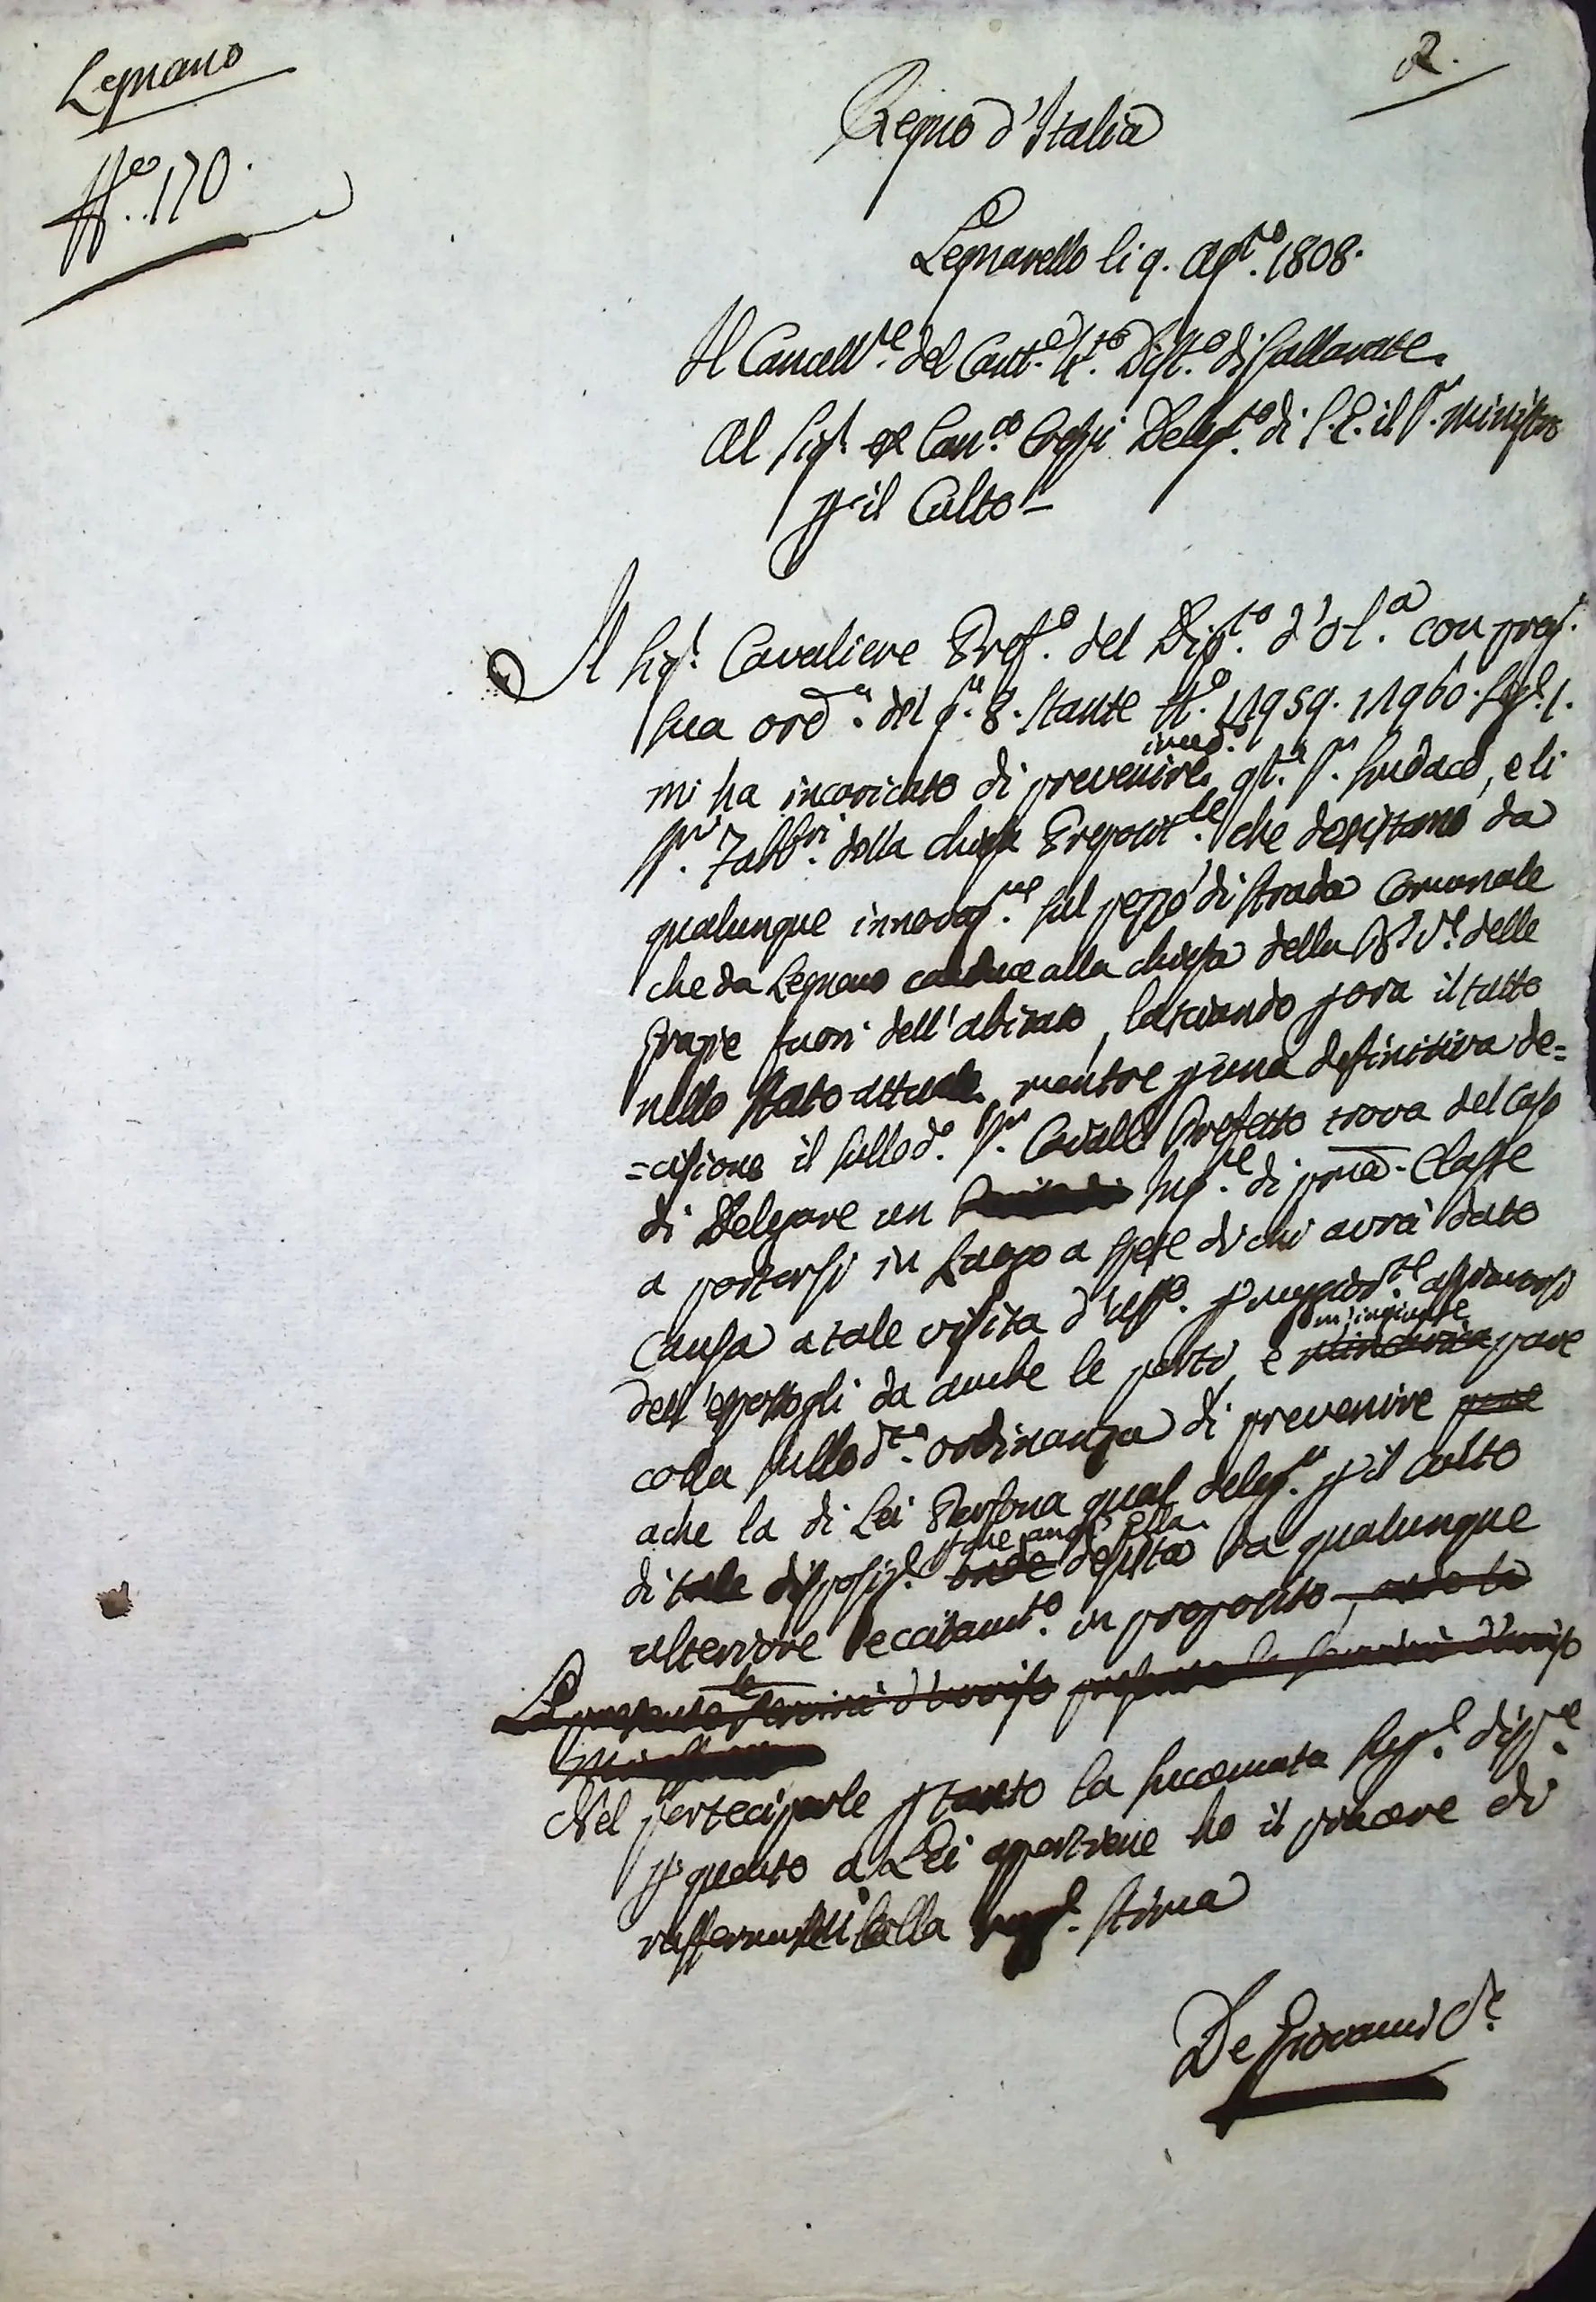 Legnano
N.o 170.
2.
Regno d'Italia
Legnarello li 9. Ag.to 1808.
Il Cancell.re del Cant.e 4.to Dist.o di Gallarate.
Al Sig.r Can.co Crespi Deleg.to di S. E. il S.r Ministro
p il Culto
Il Sig.r Cavaliere Pref.o del Dip.to d'Ol.a con preg.
sua ord.a del g.o 8. stante N.o 11959. 11960. Sez. 1.
imed.e
mi ha incaricato di prevenire qt.o S.r Sindaco, e li
S.ri Fabb.ri della chiesa Preposit.le che desistano da
qualunque innovaz.ne sul pezzo di strada Comunale
che da Legnano conduce alla chiesa della B. V. delle
Grazie fuori dell'abitato, lasciando p ora il tutto
nello stato attuale, mentre p una definitiva de=
=cisione il sullod.o S.r Cavall.e Prefetto trova del caso
di Delegare un Ing.re di prima Classe
a portarsi in Luogo a spese di chi avrà dato
causa a tale visita d'uff.o p maggior.te assicurarsi
dell'espostogli da ambe le parti, e
m'ingiunge
pare
colla sullod.ta ordinanza di prevenire
ache la di Lei Persona qual deleg.o p il culto
di tale disposiz.e
anch'Ella
desista da qualunque
ulteriore eccitam.to in proposito
La presente le servirà d'avviso
Nel parteciparle p tanto la sucennata Sup.e disp.ne
p quanto a Lei appartiene ho il piacere di
raffermarle colla stima
De Giovanni C.e